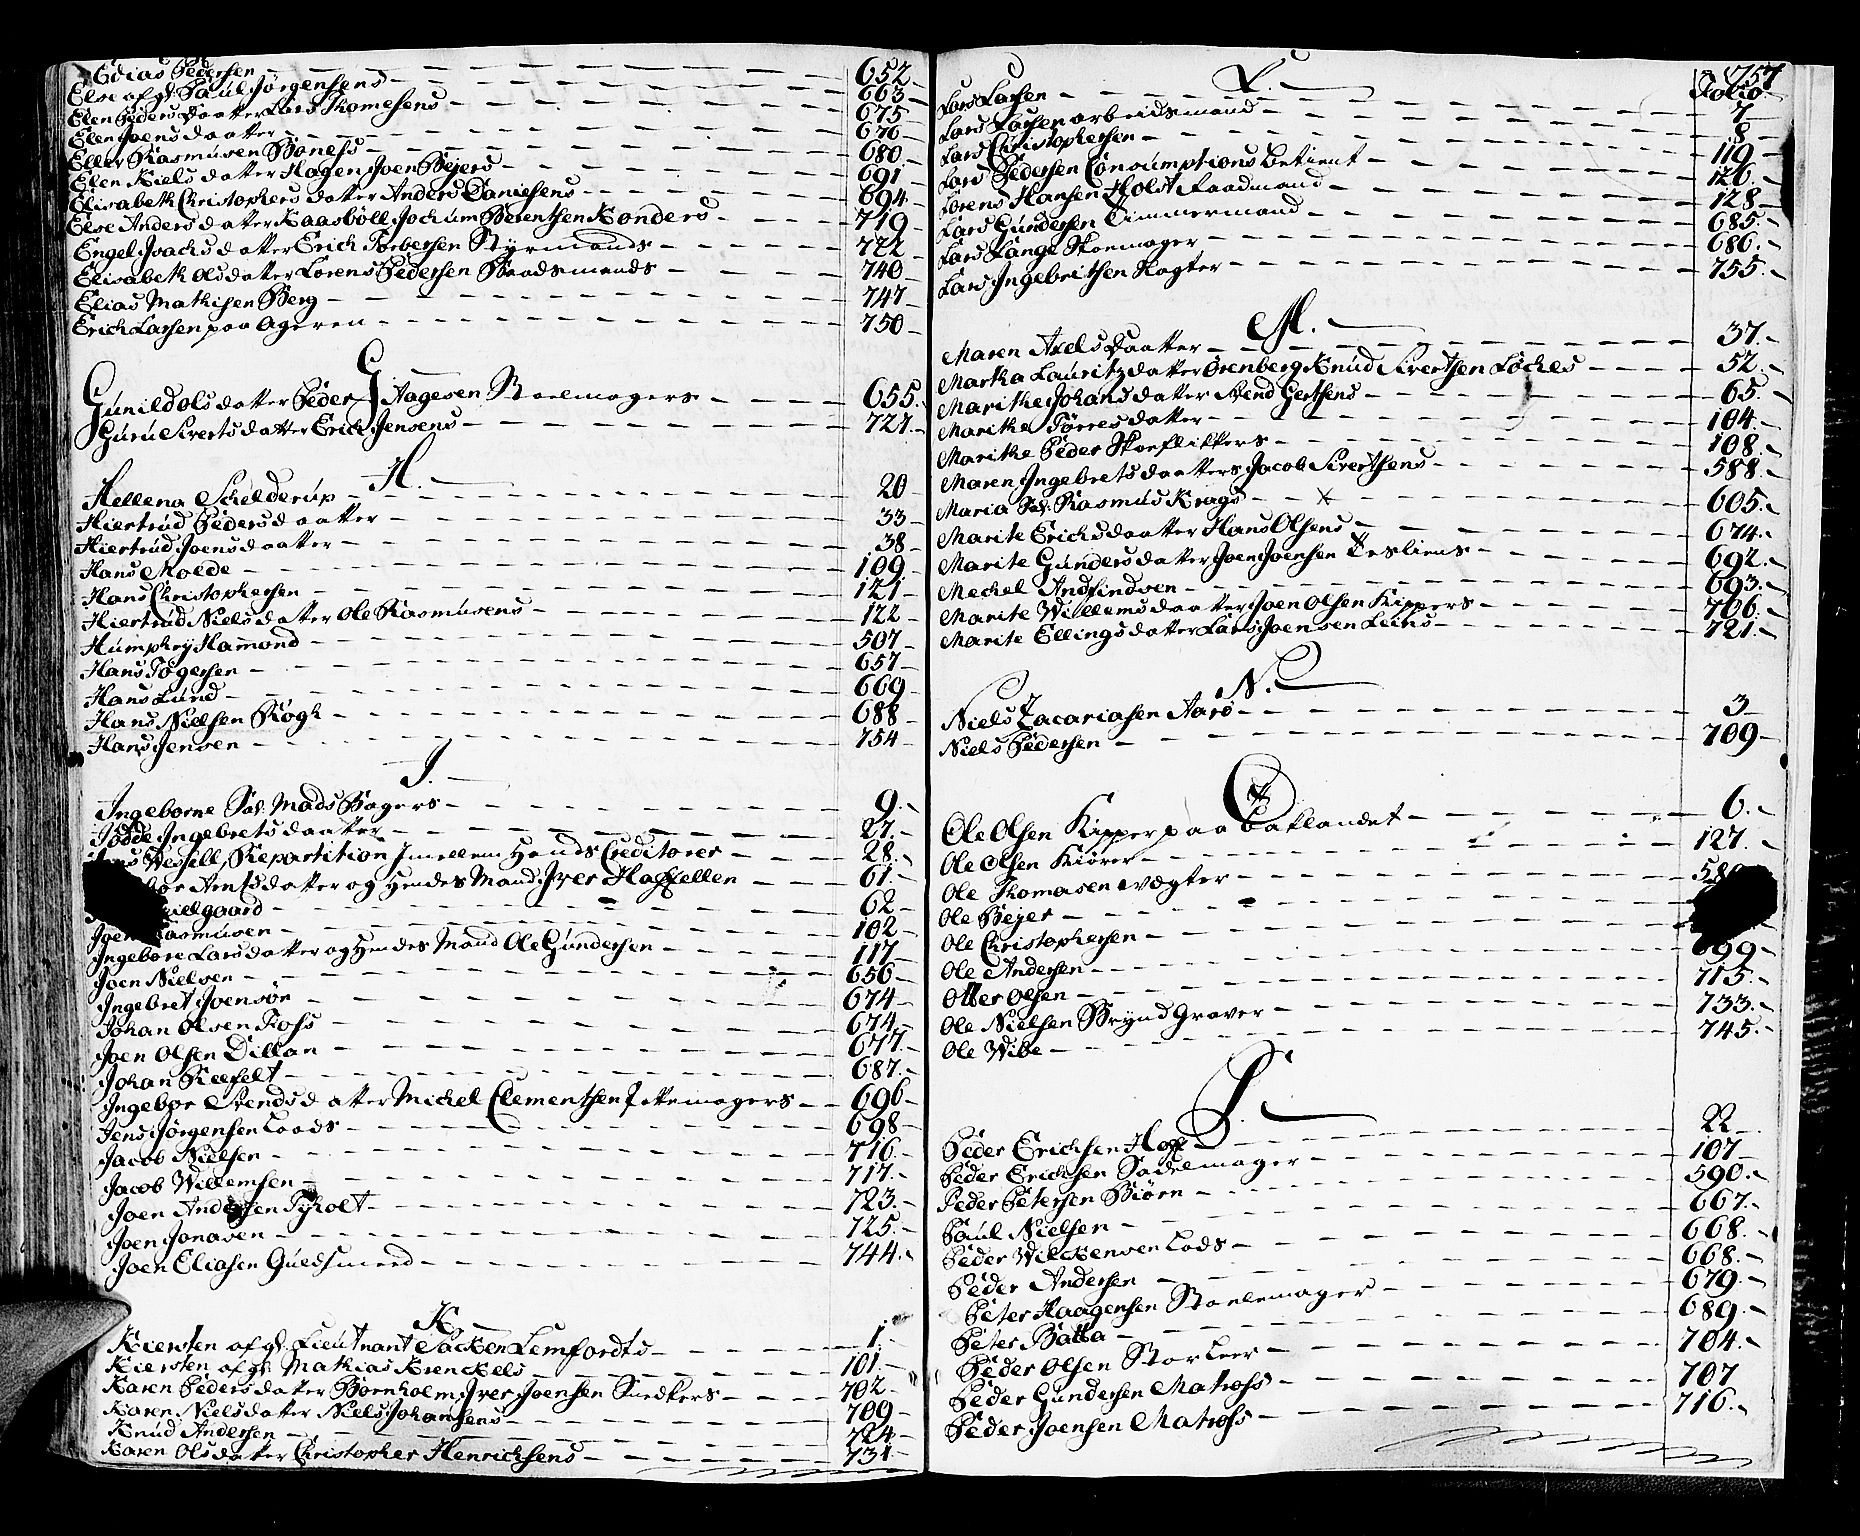 Edias Pedersen - 652
Else afg: Paul Jørgensens - 663
Elen Peders Daatter Lars Thomesens - 675
Elen Joensdaatter - 676
Eller Rasmusen Boness - 680
Elen Nielsdatter Hagen Joen Bejers - 691
Elisabeth Christophersdatter Anders Danielsens - 694
Else Andersdatter Kaasbøll Jochum Berentsen Konders - 719
Engel Joachsdatter Erich Torbersen Styrmands - 722
Elisabeth Olsdatter Lorens Pedersen Baadsmands - 740
Elias Mathisen Berg - 747
Erich Larsen paa Ageren - 750
G
Gunild Olsdatter Peder Aagesen Stoelmagers - 655.
Guru Sivertsdatter Erich Jensens - 727.
H.
Hellena Schelderup - 20
Hiertrud Pedersdaatter - 33
Hiertrud Joensdaatter - 38
Hans Molde - 109
Hans Christophersen - 121
Hiertrud Nielsdatter Ole Rasmusens - 122
Humphry Hamond - 507
Hans Togersen - 657
Hans Lund - 669
Hans Nielsen Røgh - 688
Hans Jensen - 754
I.
Ingeborne Sal. Mads Bagers - 9.
Jødde Ingebretsdaatter - 27.
Wessell, Repartition Imellem Hands Creditorer - 28.
Arntsdatter og Hendes Mand Iver Hassellen - 61.
62
Joen Rasmusen - 102
Ingebore Larsdatter og Hendes Mand Ole Gundersen - 117
Joen Nielsen - 656
Ingebret Joensøn - 674
Johan Olsen Foss - 674
Joen Olsen Dillan - 677.
Johan Reefelt - 687.
Ingebor Svendsdatter Michel Clementsen Pottemagers - 696
Jens Jørgensen Loods - 698
Jacob Nielsen - 716.
Jacob Willemsen - 717.
Joen Andersen Tyholt - 723.
Joen Jonasen - 725.
Joen Eliasen Guldsmed - 744.
K
Kiersten afg: Lieutnant Packen Lemfordts - 1.
Kiersten afg: Mathias Krenckels - 101
Karen Pedersdatter Bornholm Iver Joensen Snedkers - 702
Karen Nielsdatter Niels Johansens - 709
Knud Andersen - 724
Karen Olsdatter Christopher Henrichsens - 731
757
L. Folio
Lars Larsen - 7
Lars Larsen arbeidsmand - 8
Lars Christophersen - 119
Lars Pedersen Consumptions Betient - 126.
Lorens Hansen Holst Raadmand - 128
Lars Gundersen Timmermand - 685.
Lars Lange Skoemager - 686.
Lars Ingebritsen Vagter - 755.
M.
Maren Axels Daatter - 37.
Martha Lauritzdatter Ørenberg Knud Sivertsen Løches - 52.
Marithe Johansdatter Svend Gertsens - 65.
Marithe Tørresdatter - 104.
Marithe Peder Skoeflikkers - 108.
Maren Ingebretsdaatters Jacob Sivertsens - 588.
Maria Sal. Rasmus Krags - x - 605.
Marite Erichsdaatter Hans Olsens - 674.
Marite Gundersdatter Joen Joensen Tesliens - 692.
Mechel Andfindsen - 693.
Marite Willemsdaatter Joen Olsen Kippers - 706.
Marite Ellingsdatter Lars Joensen Liens - 721.
N.
Niels Zacariasen Aarø - 3
Niels Pedersen - 709
O
Ole Olsen Kipper paa Baklandet - 6.
Ole Olsen Kiører - 127.
Ole Thomasen vægter
Ole Bejer
Ole Christophersen - 699
Ole Andersen - 715.
Otter Olsen - 733.
Ole Nielsen Brynd Graver - 745.
Ole Wibe
P.
Peder Erichsen Hoff - 22
Peder Erichsen Sadelmager - 107
Peder Petersen Biørn - 590.
Paul Nielsen - 667.
Peder Wilckensen Lods - 668.
Peder Andersen - 668.
Peter Haagensen Stoelemager - 679.
Peter Batta - 689.
Peder Olsen Storleer - 704.
Peder Gundersen Matross - 707
Peder Joensen Matross - 716.